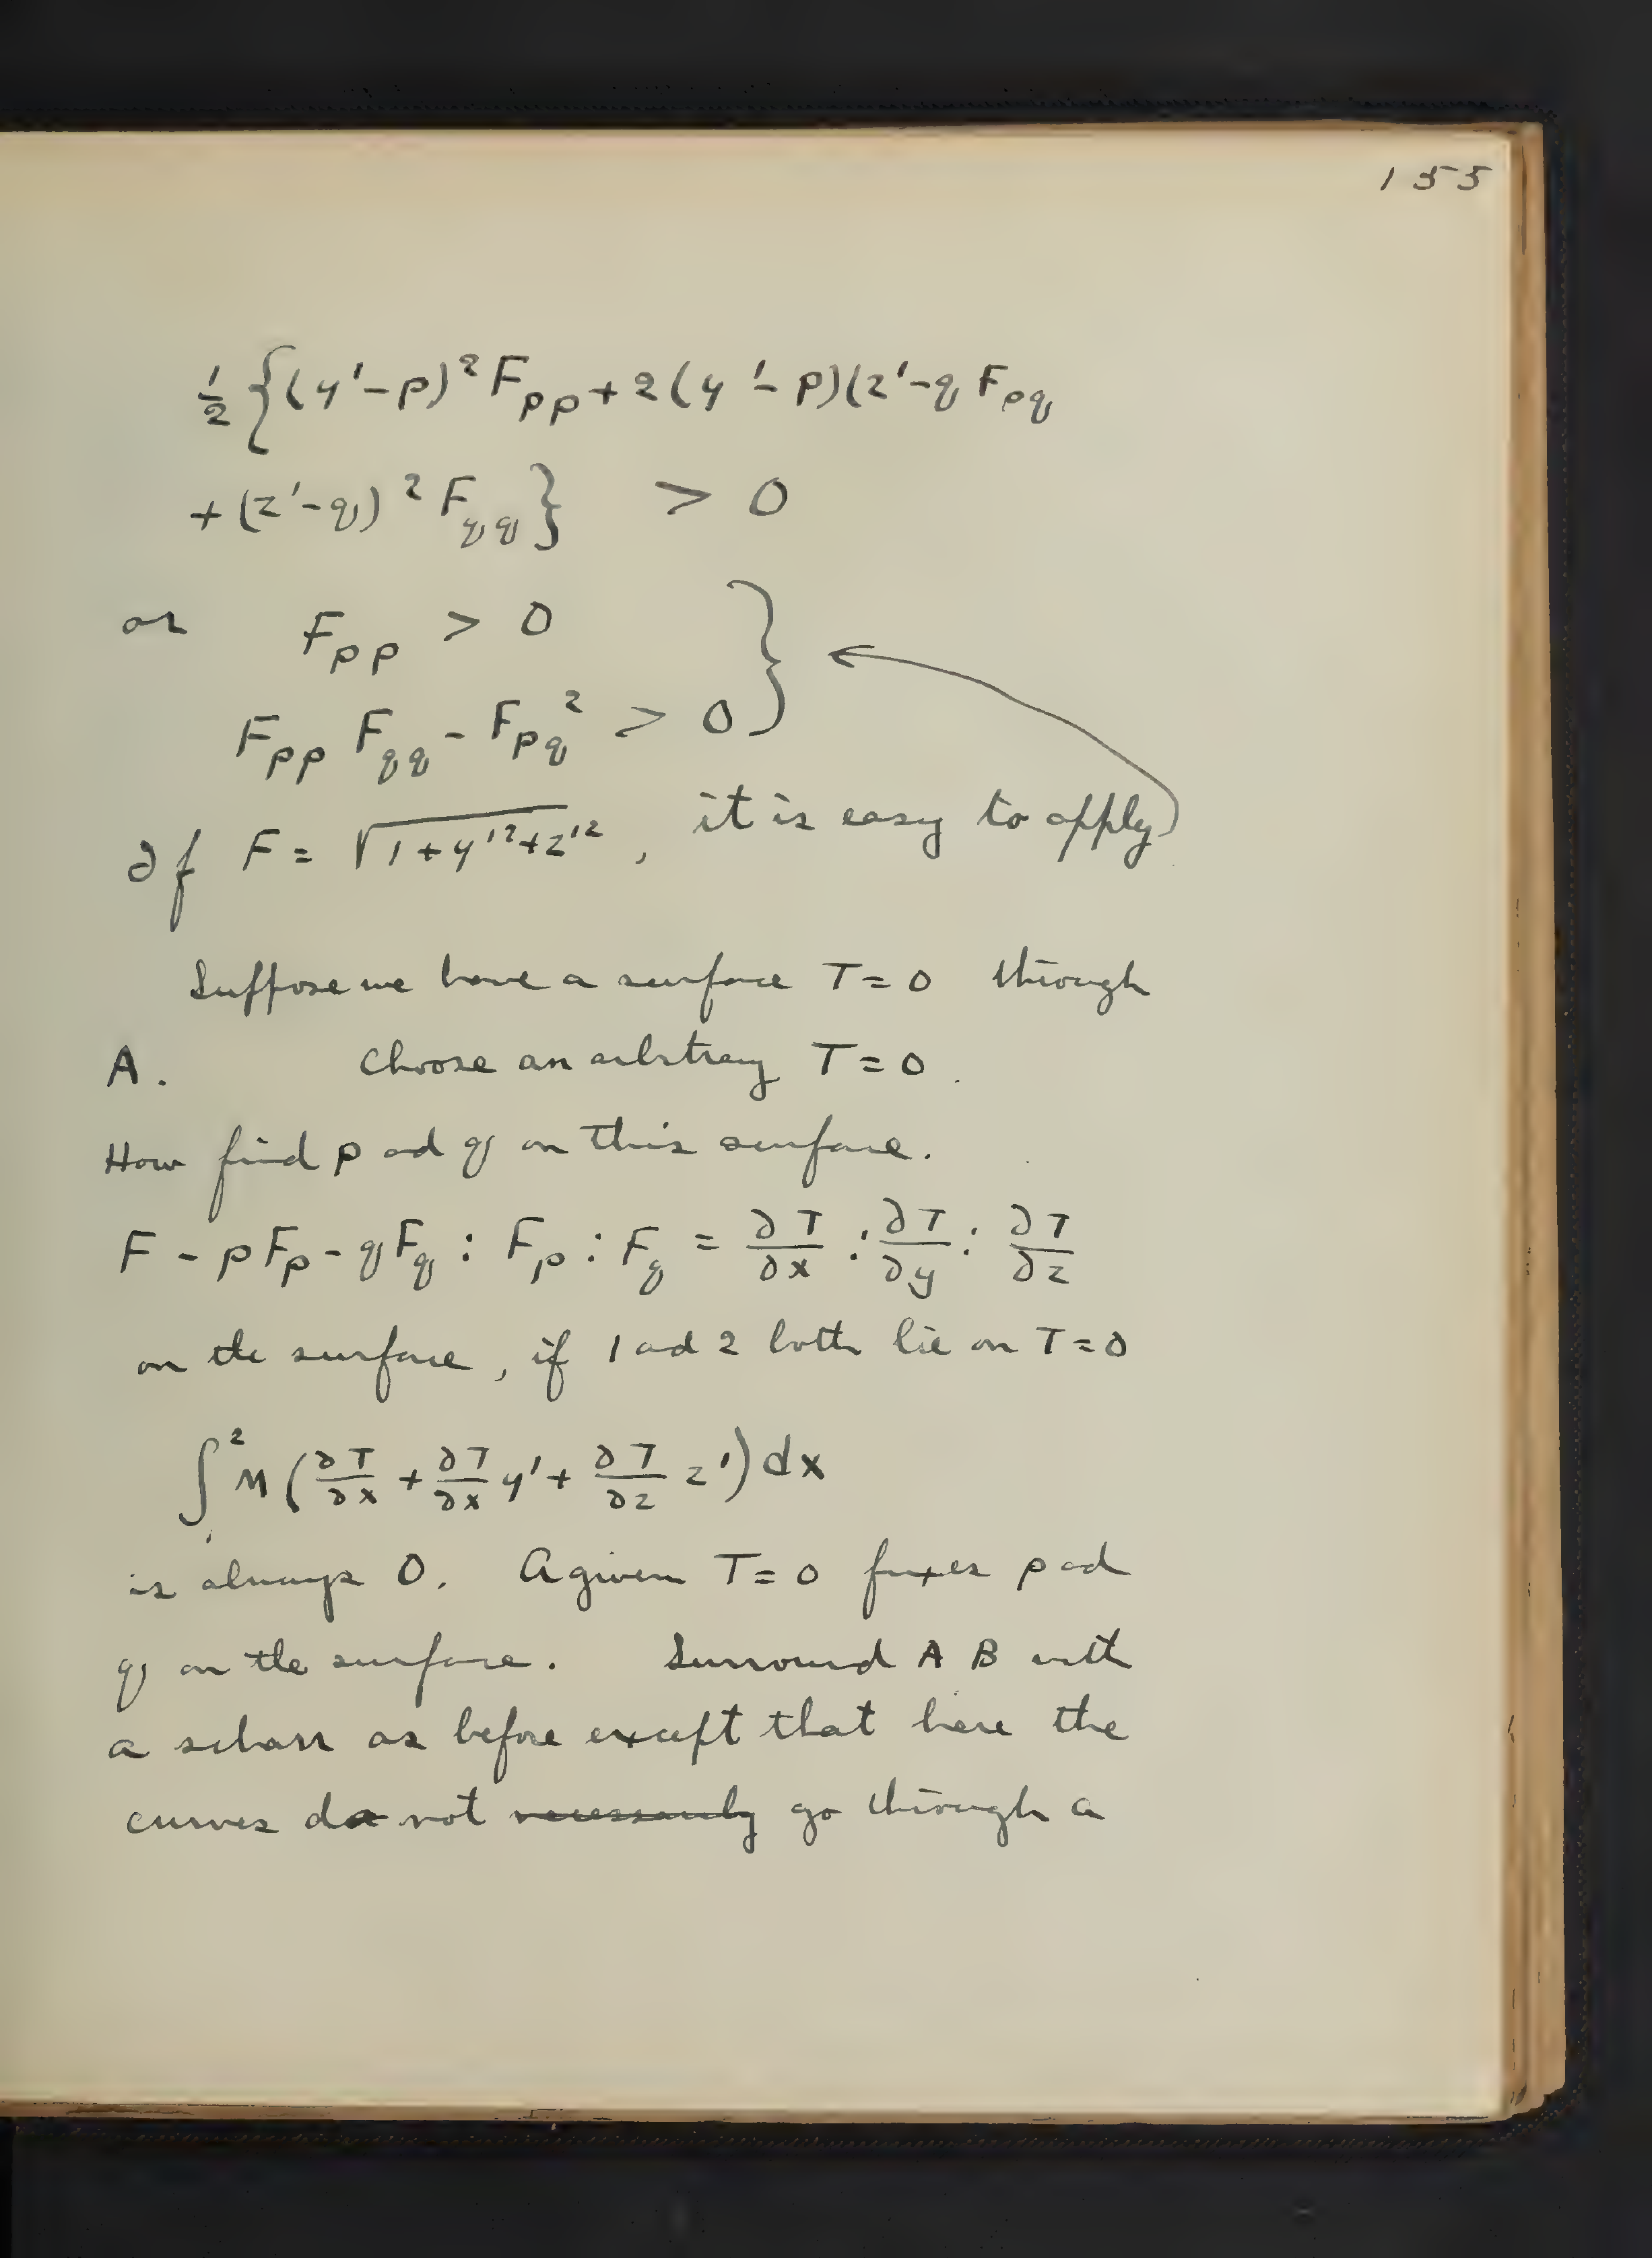 155
½ {(y'-p)² F_pp + 2(y'-p)(z'-q F_pq
+ (z'-q)² F_qq} > 0
or F_pp > 0
F_pp F_qq - F_pq² > 0 }
If F = √(1+y'²+z'²), it is easy to apply
Suppose we have a surface T=0 through
A. Choose an arbitrary T=0.
How find p and q on this surface.
F - pF_p - qF_q : F_p : F_q = ∂T/∂x : ∂T/∂y : ∂T/∂z
on the surface, if 1 and 2 both lie on T=0
∫₁² M (∂T/∂x + ∂T/∂x y' + ∂T/∂z z') dx
is always 0. A given T=0 fixes p and
q on the surface. Surround A B with
a schar as before except that here the
curves do not necessarily go through a